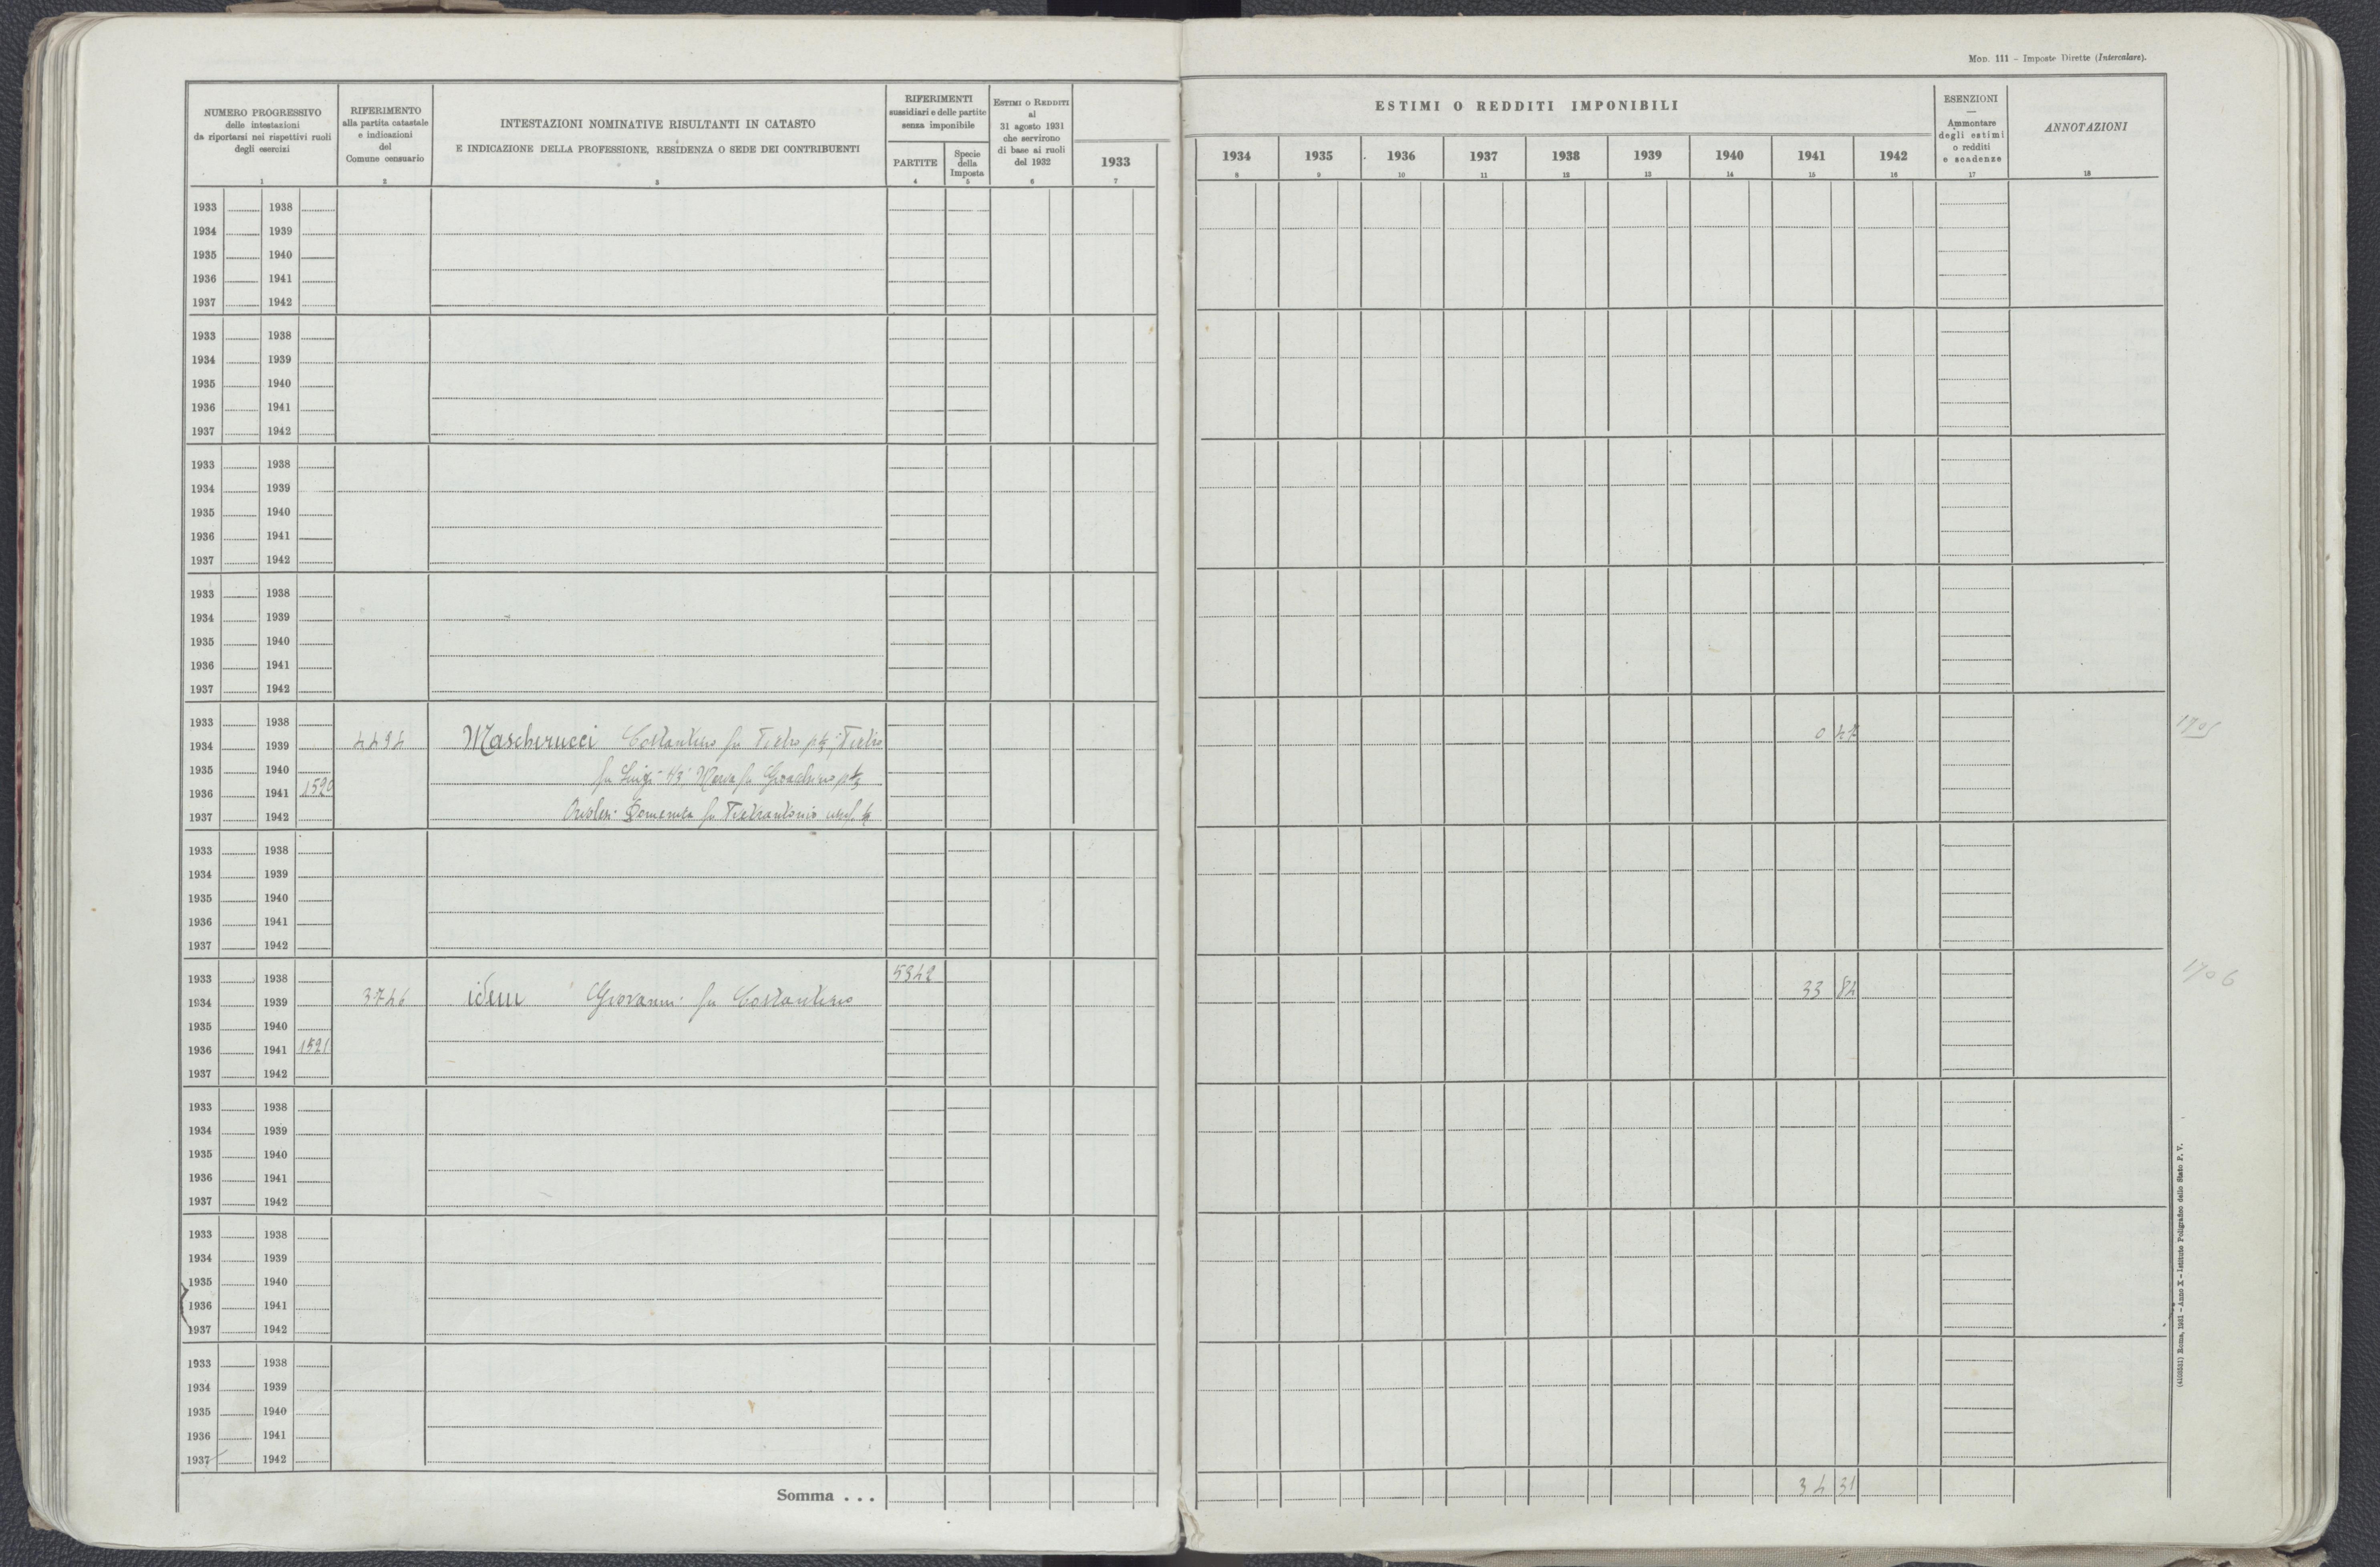 Mod. 111 – Imposte Dirette (Intercalare).
NUMERO PROGRESSIVO
delle intestazioni
da riportarsi nei rispettivi ruoli
degli esercizi
1
RIFERIMENTO
alla partita catastale
e indicazioni
del
Comune censuario
2
INTESTAZIONI NOMINATIVE RISULTANTI IN CATASTO
E INDICAZIONE DELLA PROFESSIONE, RESIDENZA O SEDE DEI CONTRIBUENTI
3
RIFERIMENTI
sussidiari e delle partite
senza imponibile
PARTITE
4
Specie
della
Imposta
5
Estimi o Redditi
al
31 agosto 1931
che servirono
di base ai ruoli
del 1932
6
1933
7
ESTIMI O REDDITI IMPONIBILI
1934 1935 1936 1937 1938 1939 1940 1941 1942
8 9 10 11 12 13 14 15 16
ESENZIONI
—
Ammontare
degli estimi
o redditi
e scadenze
17
ANNOTAZIONI
18
1933 1938
1934 1939
1935 1940
1936 1941
1937 1942
1933 1938
1934 1939
1935 1940
1936 1941
1937 1942
1933 1938
1934 1939
1935 1940
1936 1941
1937 1942
1933 1938
1934 1939
1935 1940
1936 1941
1937 1942
1933 1938 1905
1934 1939 4494 Mascherucci Costantino fu Pietro Pietro 0 47
1935 1940 fu Luigi 1/3 Maria fu Gioachino
1936 1941 1520
1937 1942 Domenica fu Pietrantonio
1933 1938
1934 1939
1935 1940
1936 1941
1937 1942
1933 1938 5342 1906
1934 1939 3746 idem Giovanni fu Costantino 33 84
1935 1940
1936 1941 1521
1937 1942
1933 1938
1934 1939
1935 1940
1936 1941
1937 1942
1933 1938
1934 1939
1935 1940
1936 1941
1937 1942
1933 1938
1934 1939
1935 1940
1936 1941
1937 1942
Somma . . . 34 31
(4103531) Roma, 1931 – Anno X – Istituto Poligrafico dello Stato P. V.